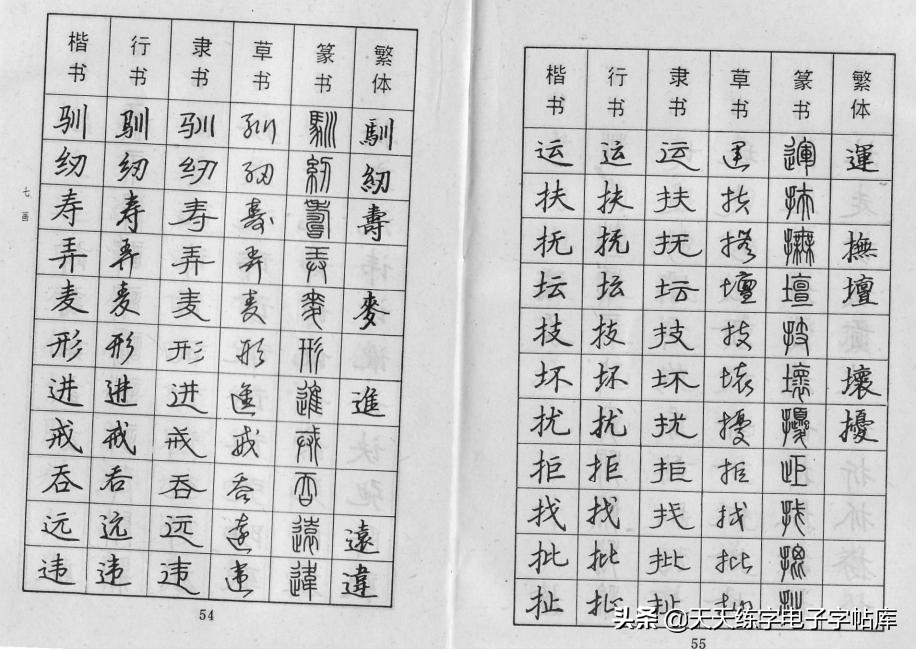 楷书 行书 隶书 草书 篆书 繁体
驯 驯 驯 驯 馴 馴
纫 纫 纫 纫 紉 紉
寿 寿 寿 壽 壽 壽
弄 弄 弄 弄 弄
麦 麦 麦 麦 麥 麥
形 形 形 形 形
进 进 进 進 進 進
戒 戒 戒 戒 戒
吞 吞 吞 吞 吞
远 远 远 遠 遠 遠
违 违 违 违 違 違
七画
54
楷书 行书 隶书 草书 篆书 繁体
运 运 运 运 運 運
扶 扶 扶 扶 扶
抚 抚 抚 撫 撫 撫
坛 坛 坛 壇 壇 壇
技 技 技 技 技
坏 坏 坏 壊 壞 壞
扰 扰 扰 擾 擾 擾
拒 拒 拒 拒 歫
找 找 找 找 找
批 批 批 批
扯 扯 扯
头条 @天天练字电子字帖库
55